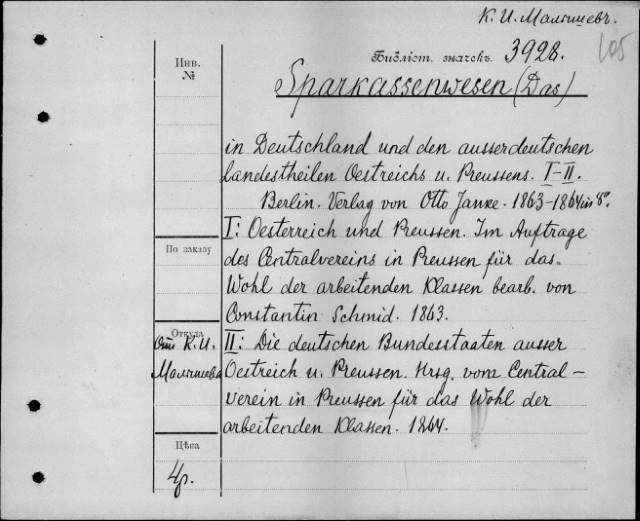 К. И. Малышевъ.
105
Библіот. значекъ. 3928.
Sparkassenwesen (Das)
in Deutschland und den ausserdeutschen
Landestheilen Oestreichs u. Preussens. I–II.
Berlin. Verlag von Otto Janke. 1863–1864 in 8°.
I: Oesterreich und Preussen. Im Auftrage
des Centralvereins in Preussen für das
Wohl der arbeitenden Klassen bearb. von
Constantin Schmid. 1863.
II: Die deutschen Bundesstaaten ausser
Oestreich u. Preussen. Hrsg. vom Central-
verein in Preussen für das Wohl der
arbeitenden Klassen. 1864.
Инв.
№
По заказу
Откуда
От К. И.
Малышева
Цѣна
4р.